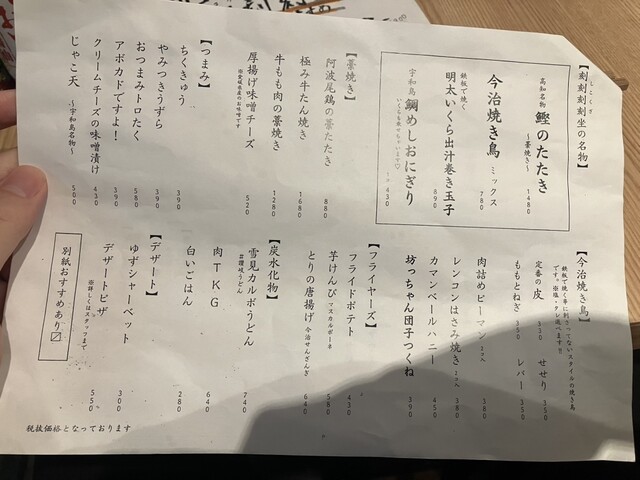 【刻刻刻刻坐の名物】
しこくざ
高知名物 鰹のたたき
～藁焼き～
1480
今治焼き鳥 ミックス
780
鉄板で焼く
明太いくら出汁巻き玉子
890
宇和島 鯛めしおにぎり
430
【藁焼き】
阿波尾鶏の藁たたき
880
極み牛たん焼き
1680
牛もも肉の藁焼き
1280
厚揚げ味噌チーズ
※愛媛県産のお味噌です
520
【つまみ】
ちくきゅう
390
やみつきうずら
390
おつまみトロたく
580
アボカドですよ！
390
クリームチーズの味噌漬け
430
じゃこ天 ～宇和島名物～
500
【今治焼き鳥】
鉄板で焼く串に刺さってないスタイルの焼き鳥
です。※塩・タレ選べます！！
定番の皮 350
せせり 350
ももとねぎ 350
レバー 350
肉詰めピーマン 2コ入
380
レンコンはさみ焼き 2コ入
380
カマンベールハニー
450
坊っちゃん団子つくね
390
【フライヤーズ】
フライドポテト
430
芋けんぴ マスカルポーネ
580
とりの唐揚げ 今治せんざんぎ
640
【炭水化物】
雪見カルボうどん
#讃岐うどん
740
肉TKG
640
白いごはん
280
【デザート】
ゆずシャーベット
300
デザートピザ
※詳しくはスタッフまで
550
別紙おすすめあり☑
税抜価格となっております